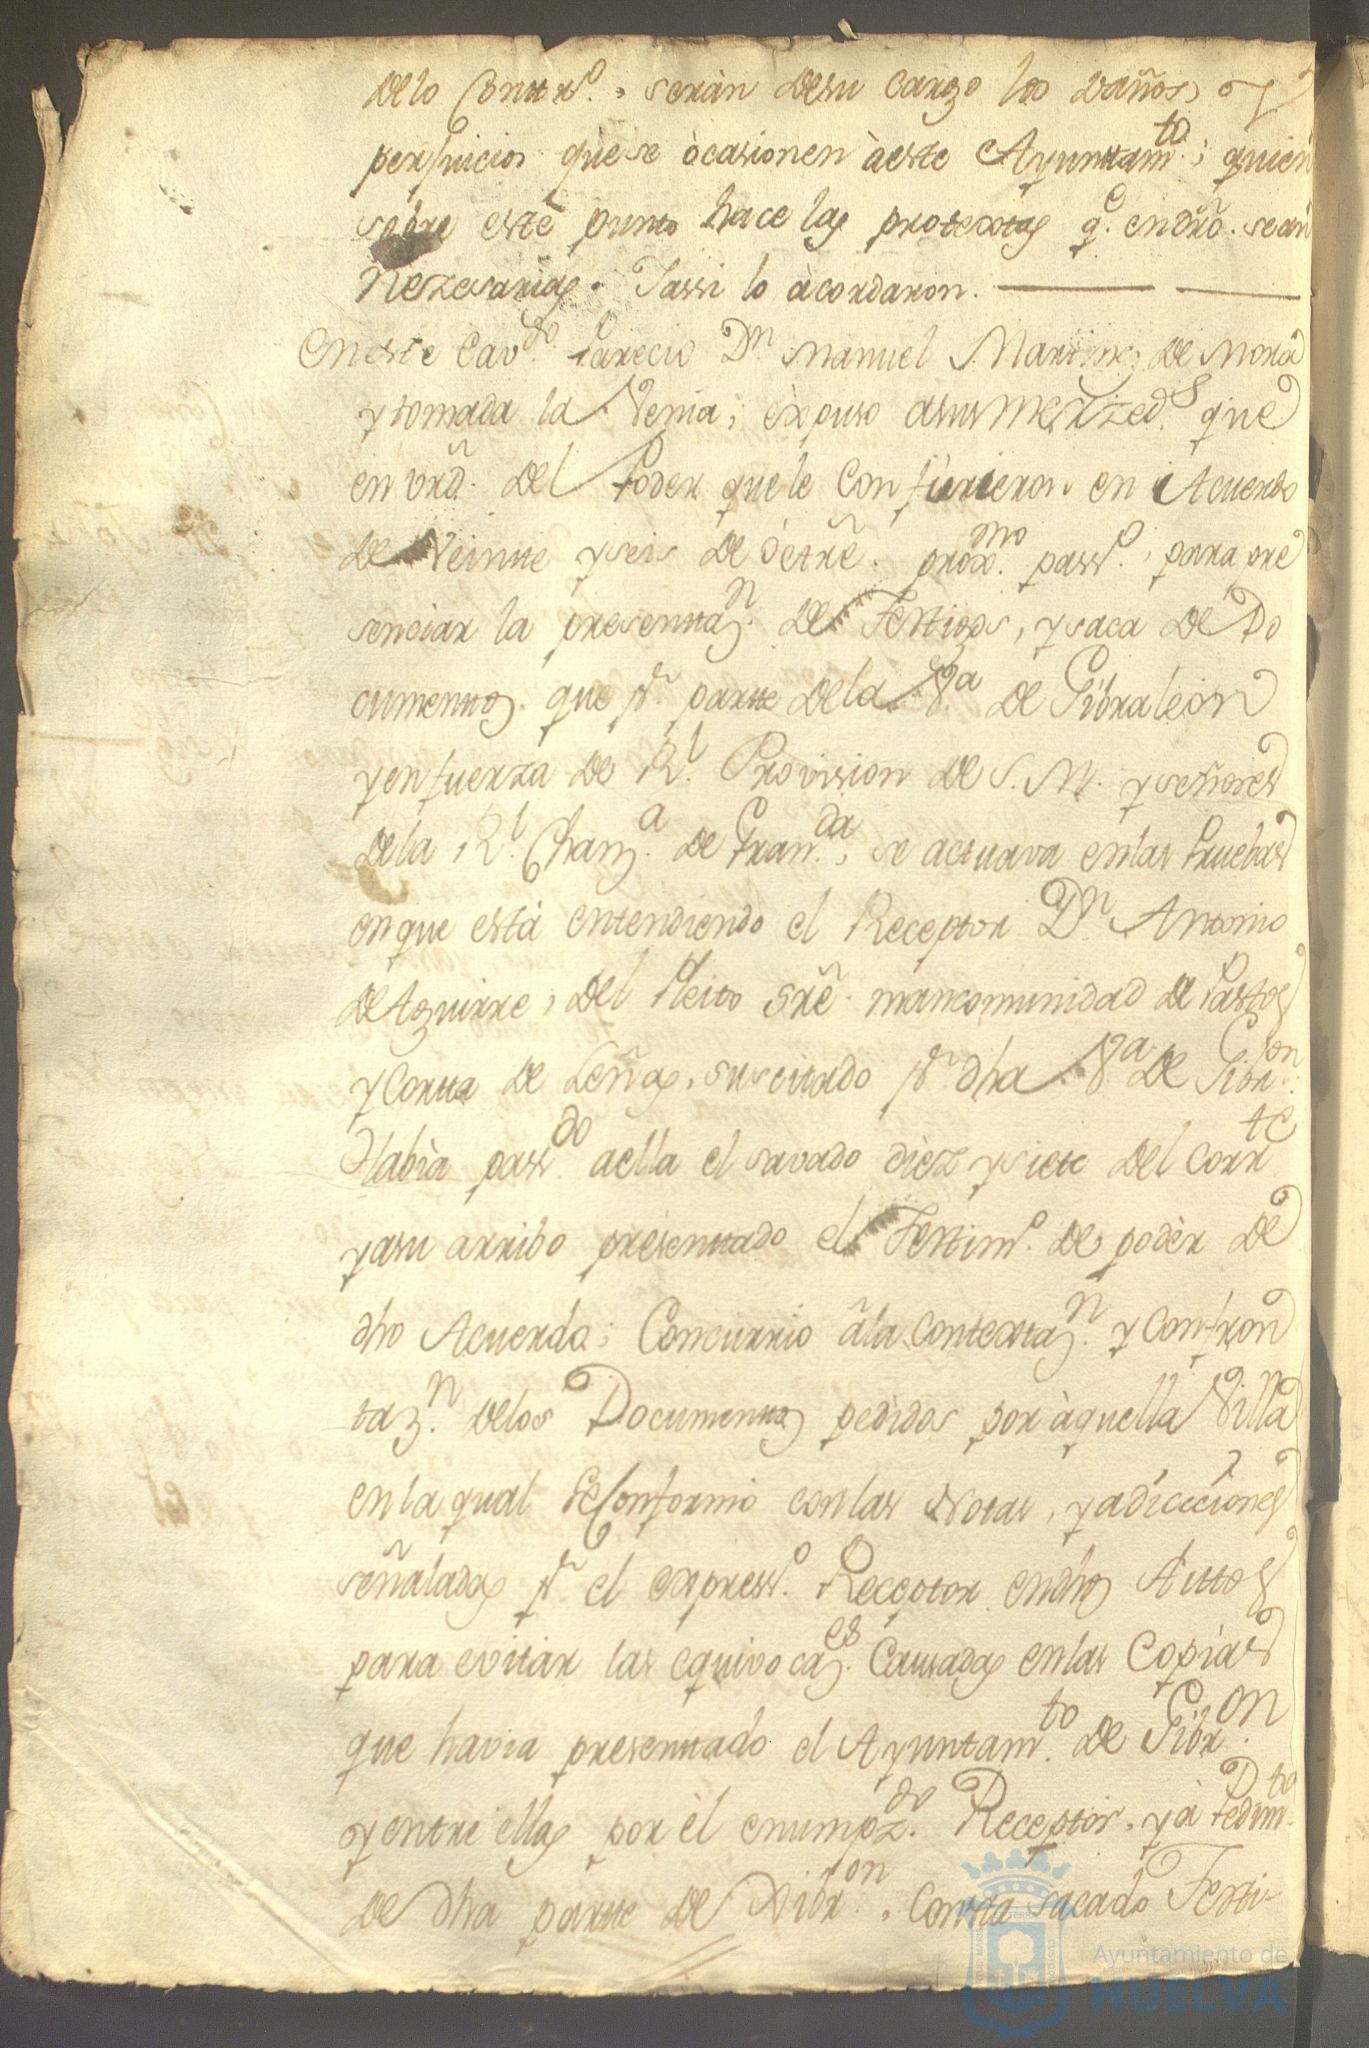 delo Contrº. seràn desu cargo los daños, y
perjuicios que se òcasionen àeste Ayuntamto; quien
sobre este punto hace las protextas qe. endrõ. sean
Nezesarias. Yassi lo àcordaron.
En este Cavdo. Parecio Dn. Manuel Martinez de Mora
y tomada la Venia, expuso asus merzeds. que
en vrd. del Poder quele Confirieron en Acuerdo
de Veinte y seis de Octrẽ. proxmo. passº. para pre
senciar la presentazn. de Testigos, y saca de Do
cumentos que pr. parte dela Va. de Gibraleon
y en fuerza de Rl. Provision de S.M. y señores
dela Rl. Chanza. de Granda. se actuava enlas Pruebas
en que està entendiendo el Receptor Dn. Antonio
de Aguirre, del Pleito srẽ. mancomunidad de Pastos
y Corta de Leñas, suscitado pr. dha Va. de Gibron.
Habìa passdo. aella el savado dièz y siete del corrte
y asu arribo presentado el Testimº. de podèr de
dho Acuerdo; Concurrio àla contextazn. y Confron
tazn. delos Documentos pedidos por àquella Villa
en la qual se Conformò con las Notas, y adicciones
señaladas pr. el expressº. Receptor en dhos Auttos
para evitar las equivocazes. Causadas en las Copias
que havia presentado el Ayuntamto. de Gibron.
y entre ellas por èl enunpzdo. Receptor, y à Pedimto.
de dha parte de Gibron. Consta sacado Testi-
Ayuntamiento de
HUELVA